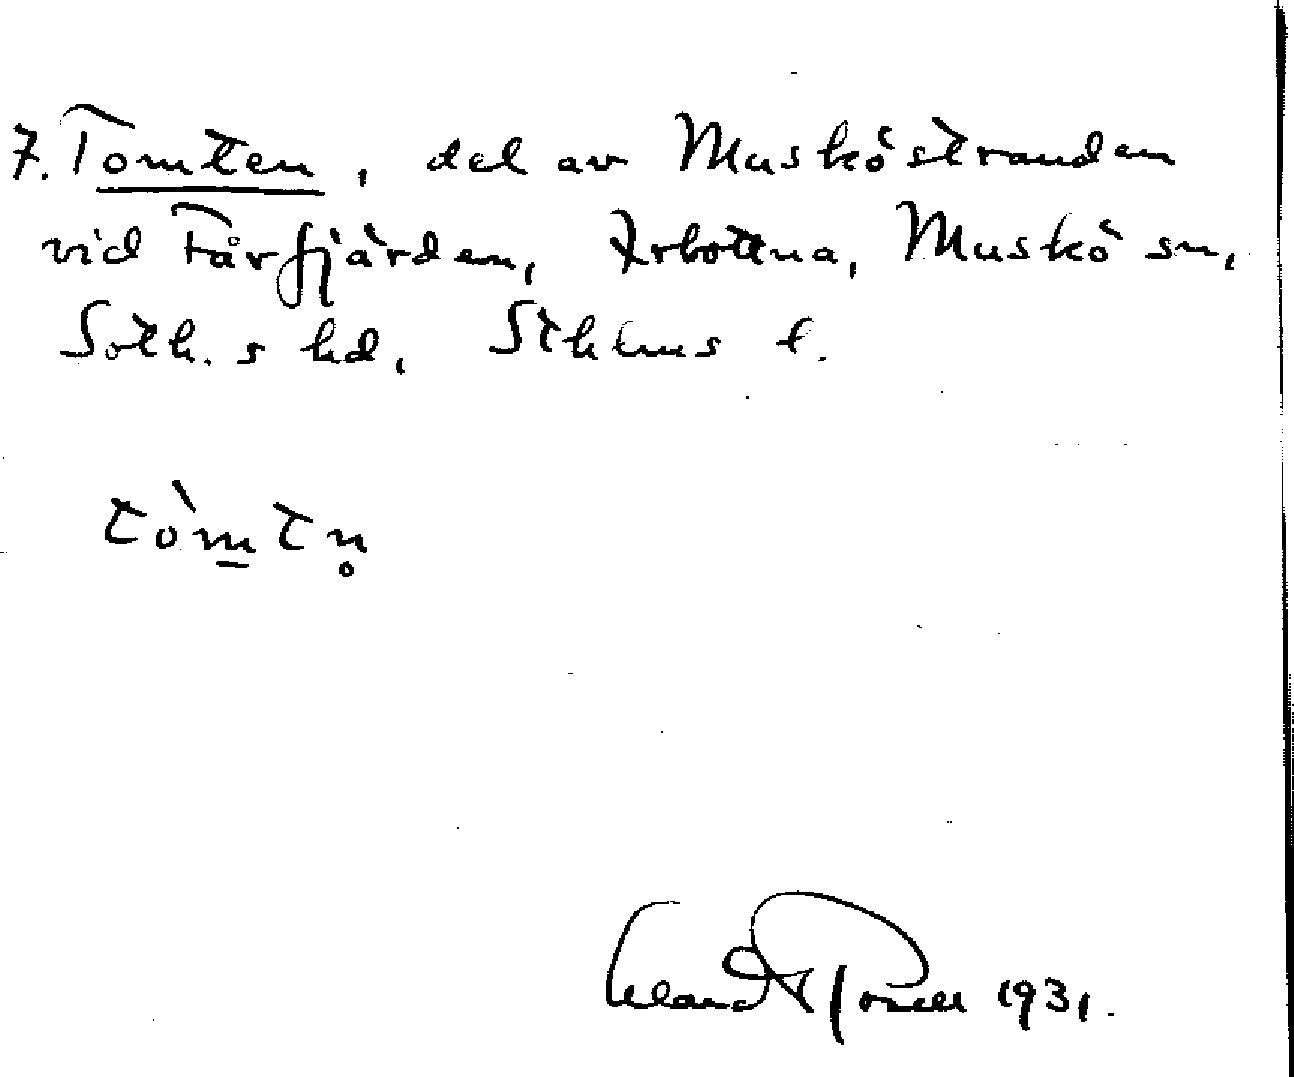 7. Tomten, del av Musköstranden
vid Fårfjärden, Arbottna, Muskö sn,
Soth. s hd. Sthlms l.
tòmtn̥
1931.